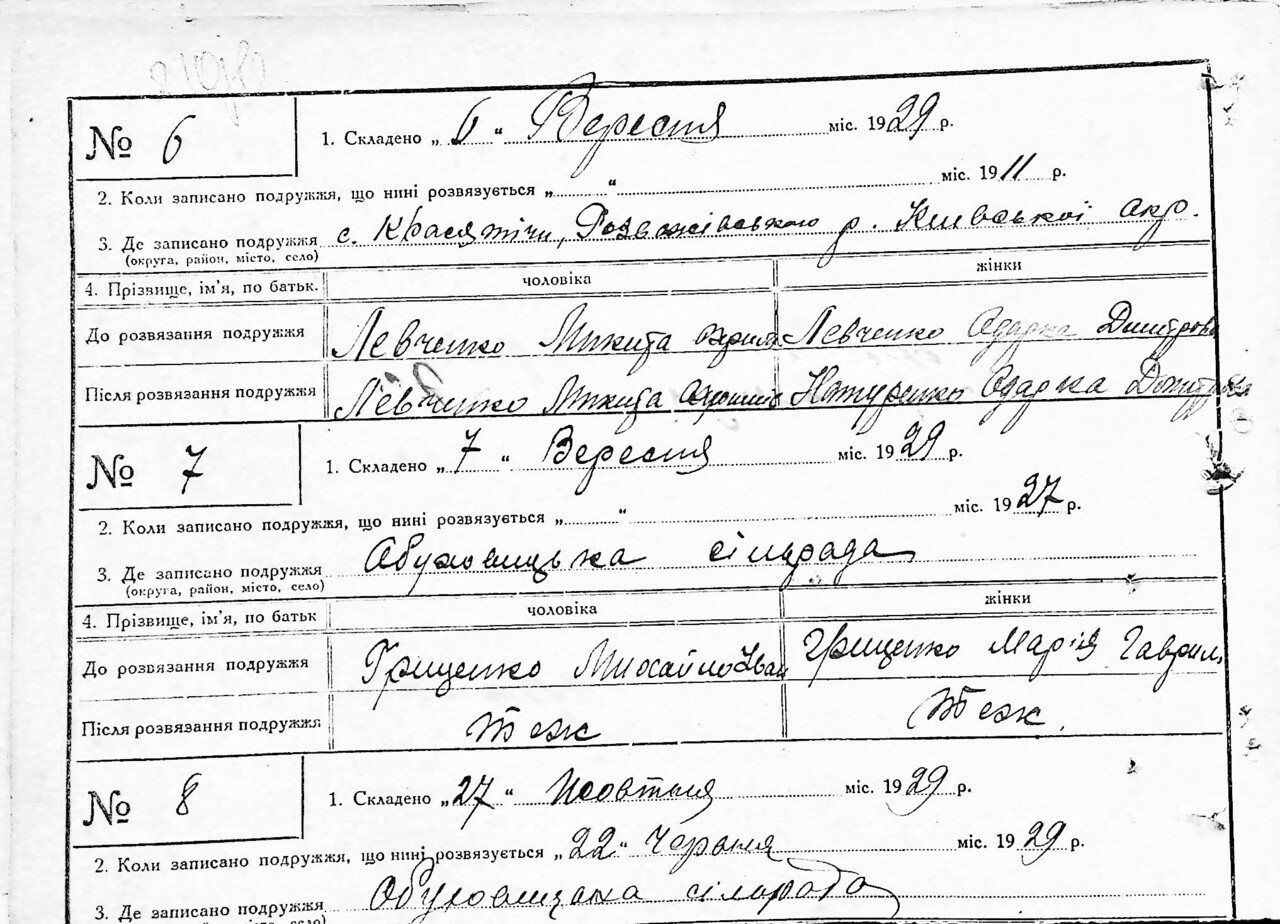 № 6
1. Складено „ 6 “ Вересня міс. 1929 р.
2. Коли записано подружжя, що нині розвязується „ “ міс. 1911 р.
3. Де записано подружжя с. Красятічи, Розважівського р. Київської окр.
(округа, район, місто, село)
4. Прізвище, ім'я, по батьк. чоловіка жінки
До розвязання подружжя Левченко Микита Левченко Одарка Дмитровн
Після розвязання подружжя Левченко Микита Одарка
№ 7
1. Складено „ 7 “ Вересня міс. 1929 р.
2. Коли записано подружжя, що нині розвязується „ “ міс. 1927 р.
3. Де записано подружжя Обуховицька сільрада
(округа, район, місто, село)
4. Прізвище, ім'я, по батьк чоловіка жінки
До розвязання подружжя Грищенко Михайло Іван Грищенко Марія Гаврил
Після розвязання подружжя Теж Теж
№ 8
1. Складено „ 27 “ Жовтня міс. 1929 р.
2. Коли записано подружжя, що нині розвязується „ 22 “ Червня міс. 1929 р.
3. Де записано подружжя Обуховицька сільрада